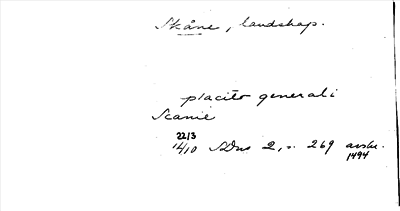 Skåne, landskap.
placito generali
Scanie
22/3
14/10 SDns 2, s. 269 avskr.
1494